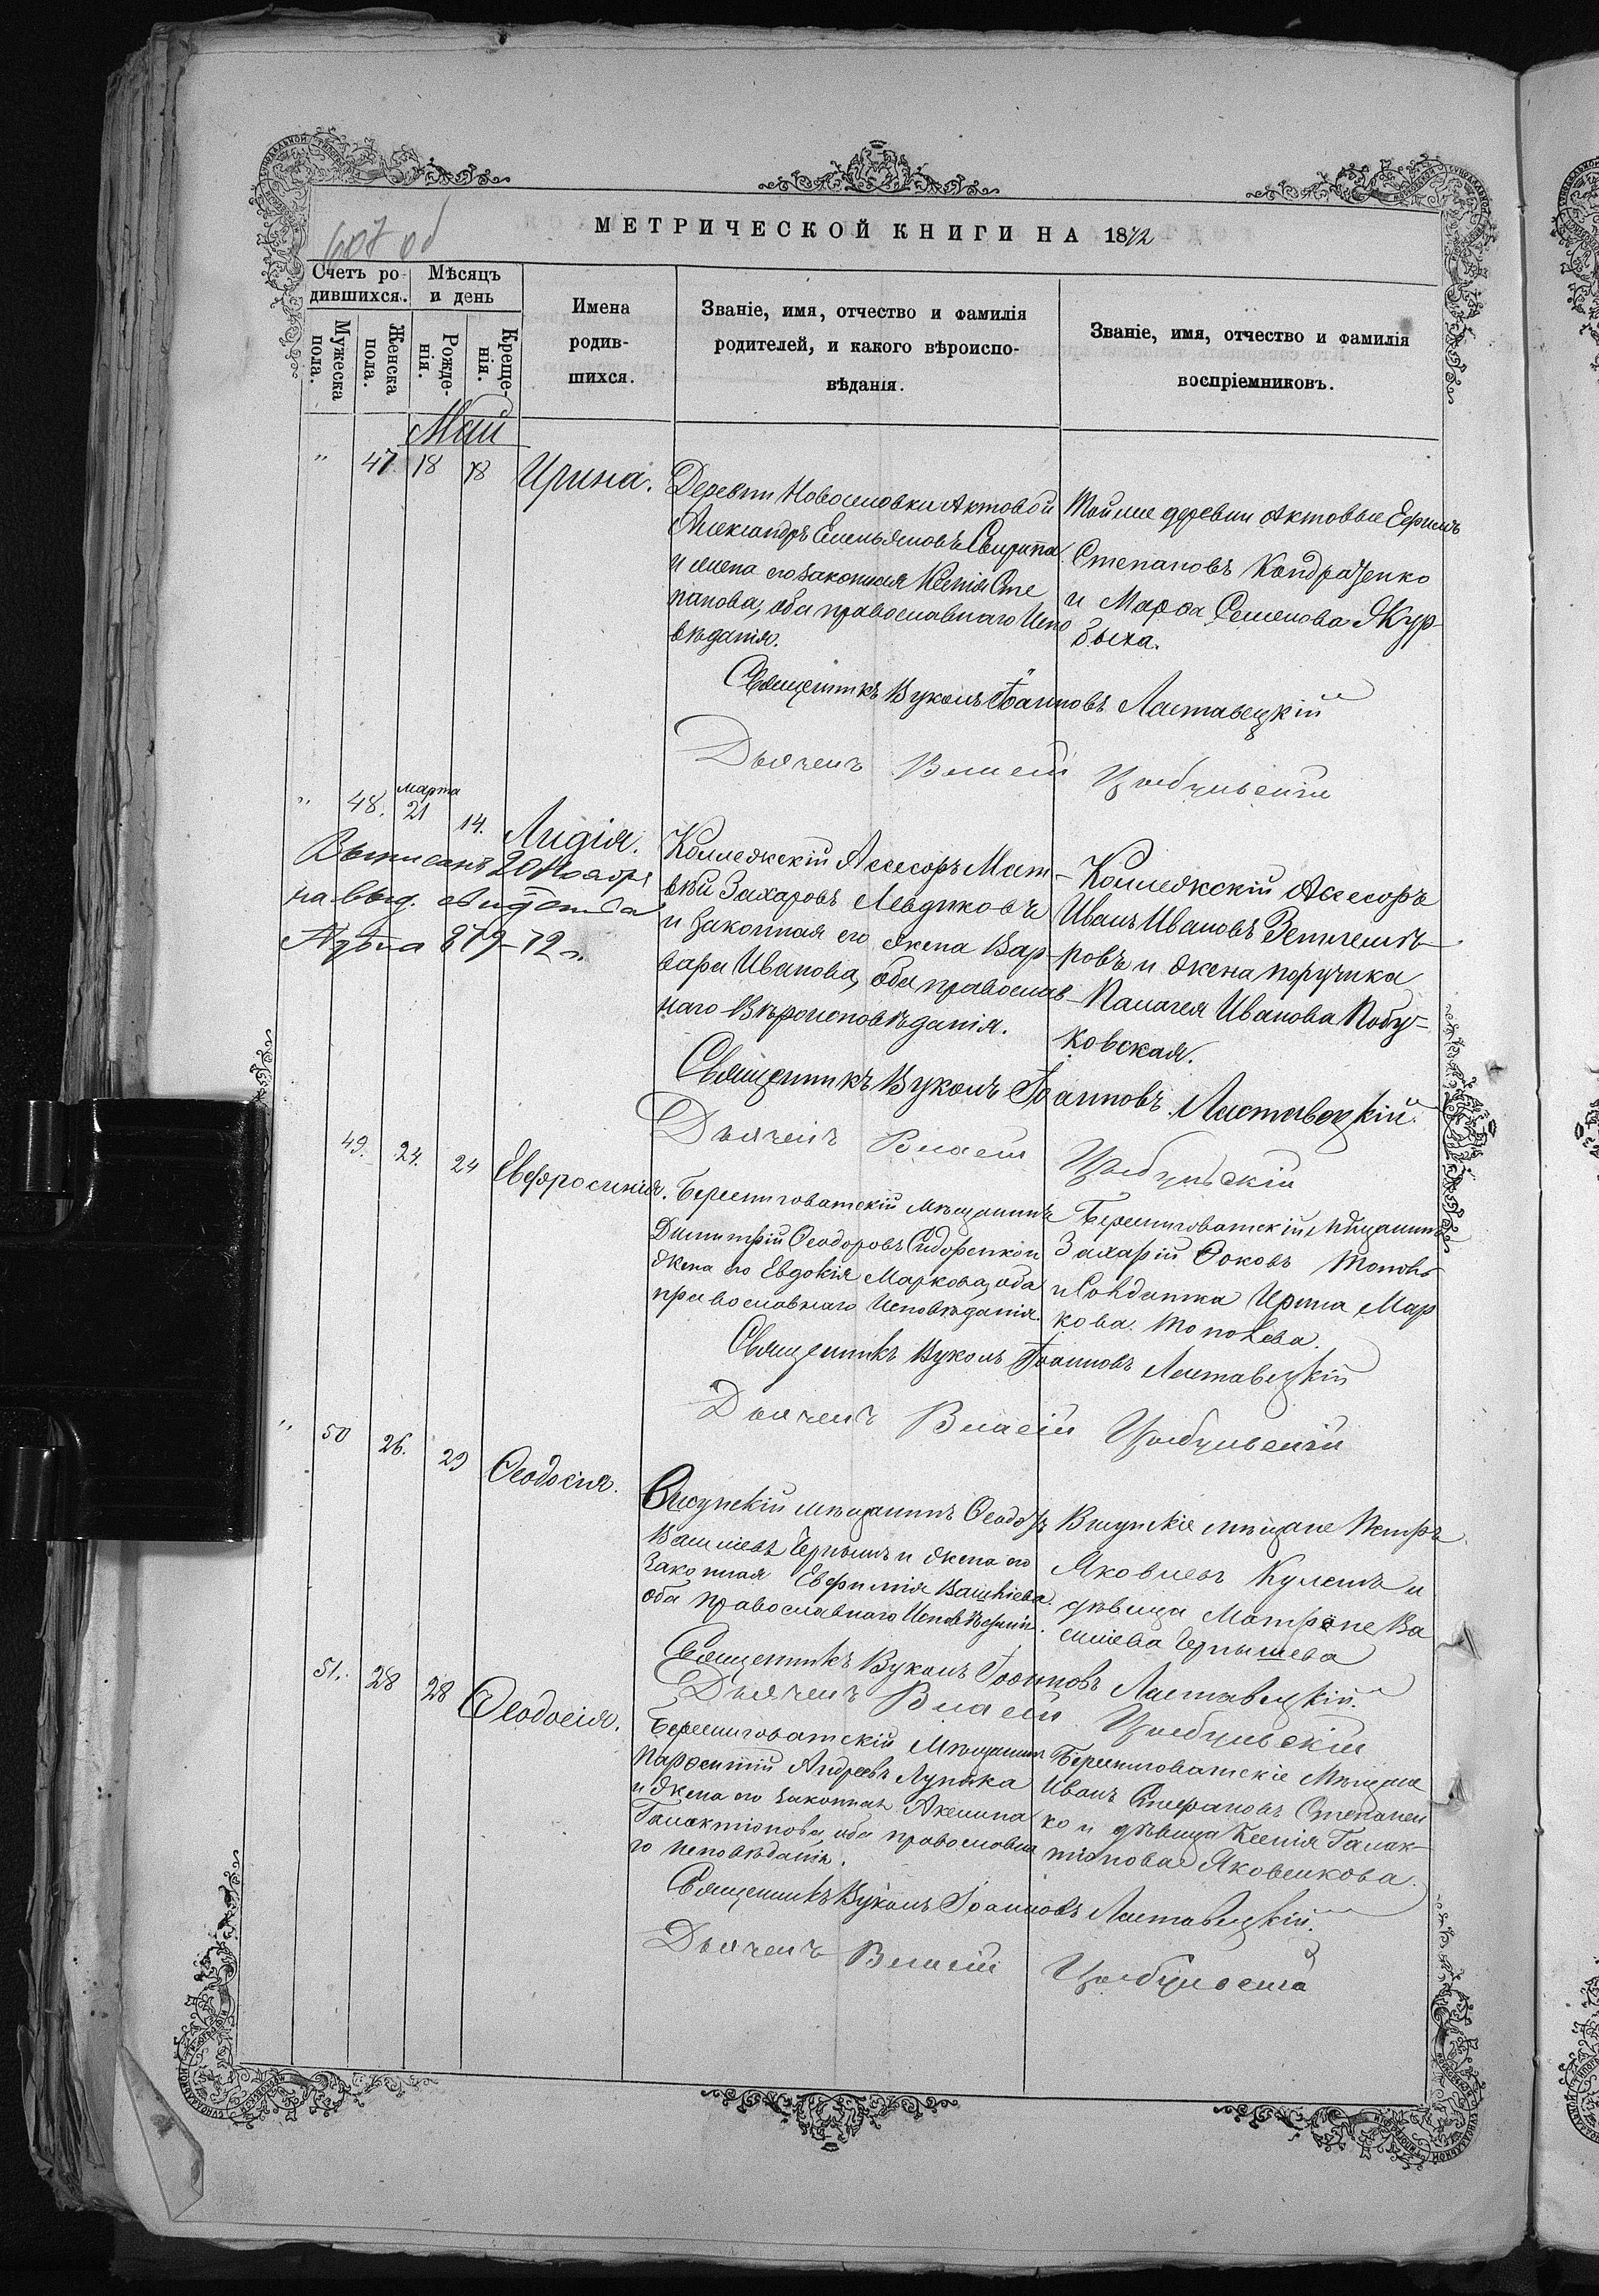 607 об
МЕТРИЧЕСКОЙ КНИГИ НА 1872
Счетъ ро-
дившихся.
Мѣсяцъ
и день
Мужеска
пола.
Женска
пола.
Рожде-
нія.
Креще-
нія.
Имена
родив-
шихся.
Званіе, имя, отчество и фамилія
родителей, и какого вѣроиспо-
вѣданія.
Званіе, имя, отчество и фамилія
воспріемниковъ.
Май
" 47. 18 18 Ирина.
Деревни Новоселовки Актовой
Александръ Емельяновъ
и жена его законная Ксенія Сте
панова, оба православнаго Испо
вѣданія.
Тойже деревни Актовые Ефимъ
Степановъ Кондраценко
и Марфа Семенова
Священникъ Вуколъ Іоанновъ Ластавецкій
Дьячекъ Власій Цыбульскій
" 48. марта 21 14. Лидія.
20 Ноября
879-72 г.
Коллежскій Асесоръ Мат-
вѣй Захаровъ
и законная его жена Вар-
вара Иванова, оба православ-
наго Вѣроисповѣданія.
Коллежскій Асесоръ
Иванъ Ивановъ
ровъ и жена поручика
Палагея Иванова
ковская.
Священникъ Вуколъ Іоанновъ Ластавецкій.
Дьячекъ Власій Цыбульскій
49. 24. 24 Евфросинія.
Береснговатскій Мѣщанинъ
Димитрій Ѳеодоровъ Сидоренко и
жена его Евдокія Маркова, оба
православнаго Исповѣданія.
Береснговатскій Мѣщанинъ
Захарій
и Солдатка Ирина Мар
кова
Священникъ Вуколъ Іоанновъ Ластавецкій
Дьячекъ Власій Цыбульскій
" 50 26. 29 Ѳеодосія.
Висунскій мѣщанинъ Ѳеодоръ
Василіевъ Чернышъ и жена его
законная Евфимія Василіева
оба православнаго Исповѣданія.
Висунскіе мѣщане Петръ
Яковлевъ Кулешъ и
дѣвица Матрона Ва
силіева Чернышева
Священникъ Вуколъ Іоанновъ Ластавецкій.
Дьячекъ Власій Цыбульскій
51. 28 28 Ѳеодосія.
Береснговатскій Мѣщанинъ
Андреевъ
и жена его законная Акилина
Галактіонова, оба православна
го исповѣданія.
Береснговатскіе Мѣщане
Иванъ Стефановъ Степанен
ко и дѣвица Ксенія Галак-
тіонова Яковенкова.
Священникъ Вуколъ Іоанновъ Ластавецкій.
Дьячекъ Власій Цыбульскій